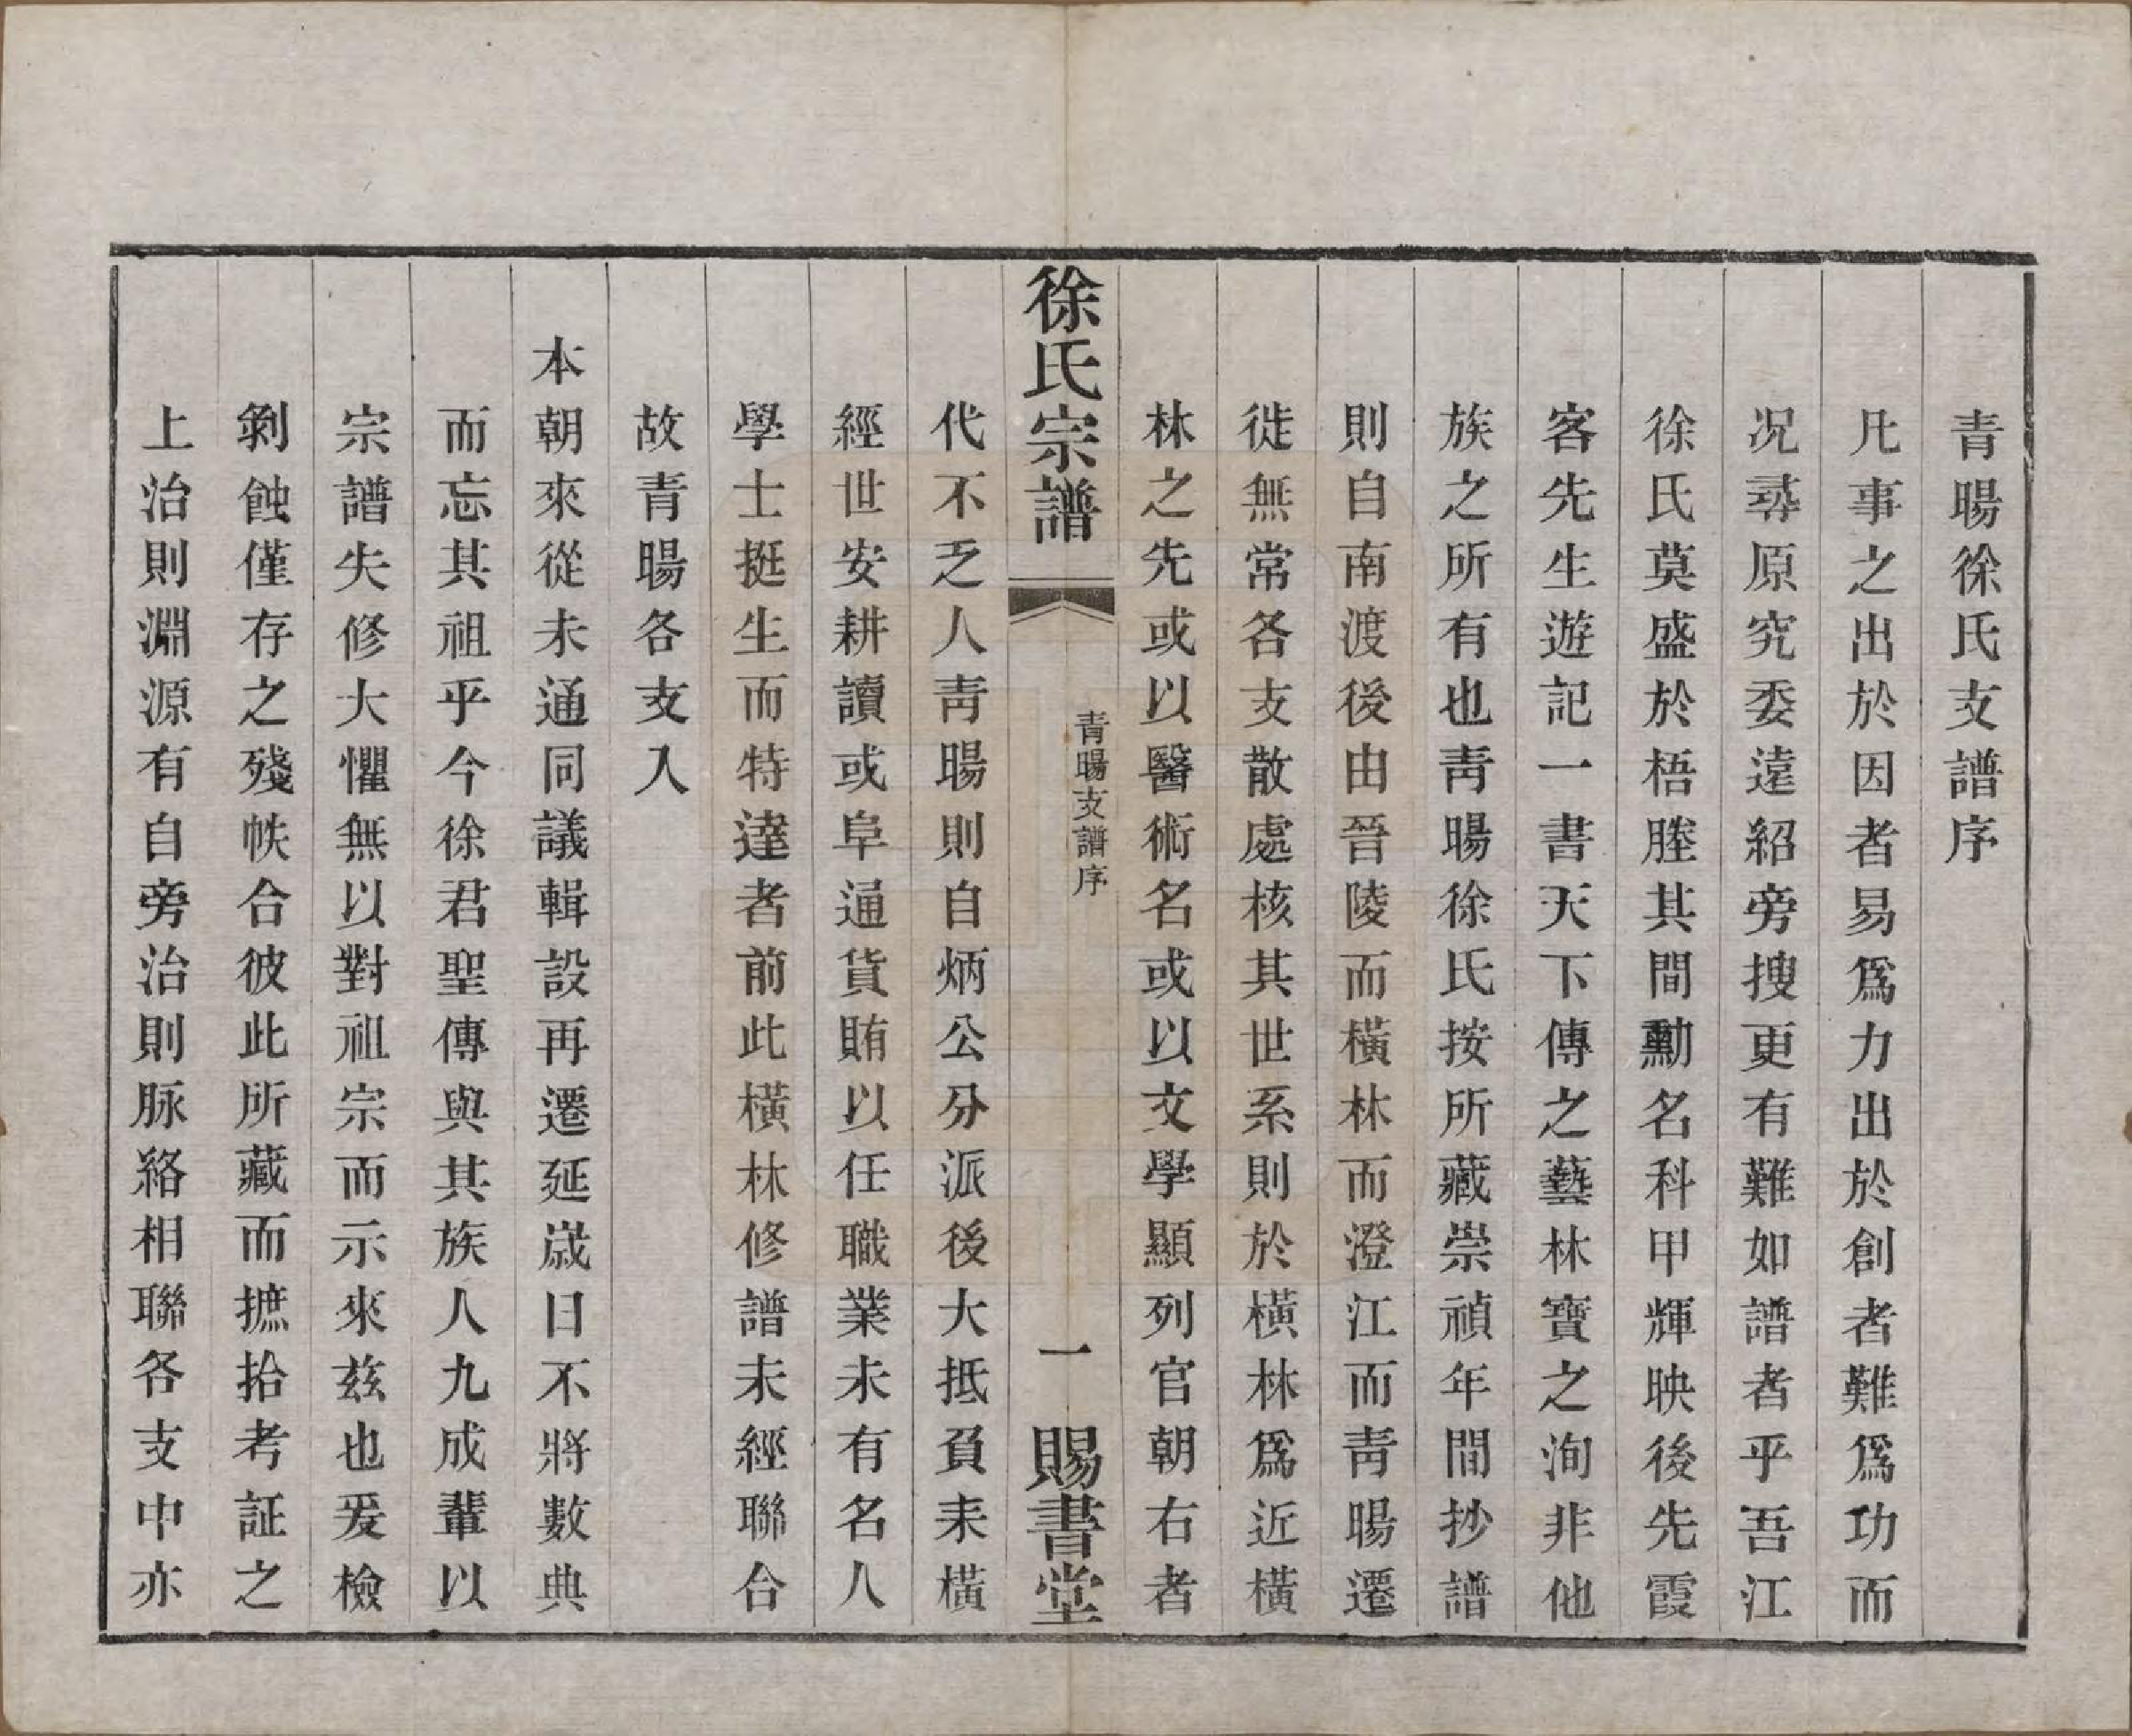 青暘徐氏支譜序
凡事之出於因者易爲力出於創者難爲功而
况尋原究委遠紹旁搜更有難如譜者乎吾江
徐氏莫盛於梧塍其間勳名科甲輝映後先霞
客先生遊記一書天下傳之藝林寶之洵非他
族之所有也靑暘徐氏按所藏崇禎年間抄譜
則自南渡後由晉陵而橫林而澄江而靑暘遷
徙無常各支散處核其世系則於橫林爲近橫
林之先或以醫術名或以文學顯列官朝右者
徐氏宗譜
青暘支譜序
一
賜書堂
代不乏人靑暘則自炳公分派後大抵負耒橫
經世安耕讀或阜通貨賄以任職業未有名人
學士挺生而特達者前此橫林修譜未經聯合
故青暘各支入
本朝來從未通同議輯設再遷延歲日不將數典
而忘其祖乎今徐君聖傳與其族人九成輩以
宗譜失修大懼無以對祖宗而示來兹也爰檢
剝蝕僅存之殘帙合彼此所藏而摭拾考証之
上治則淵源有自旁治則脉絡相聯各支中亦